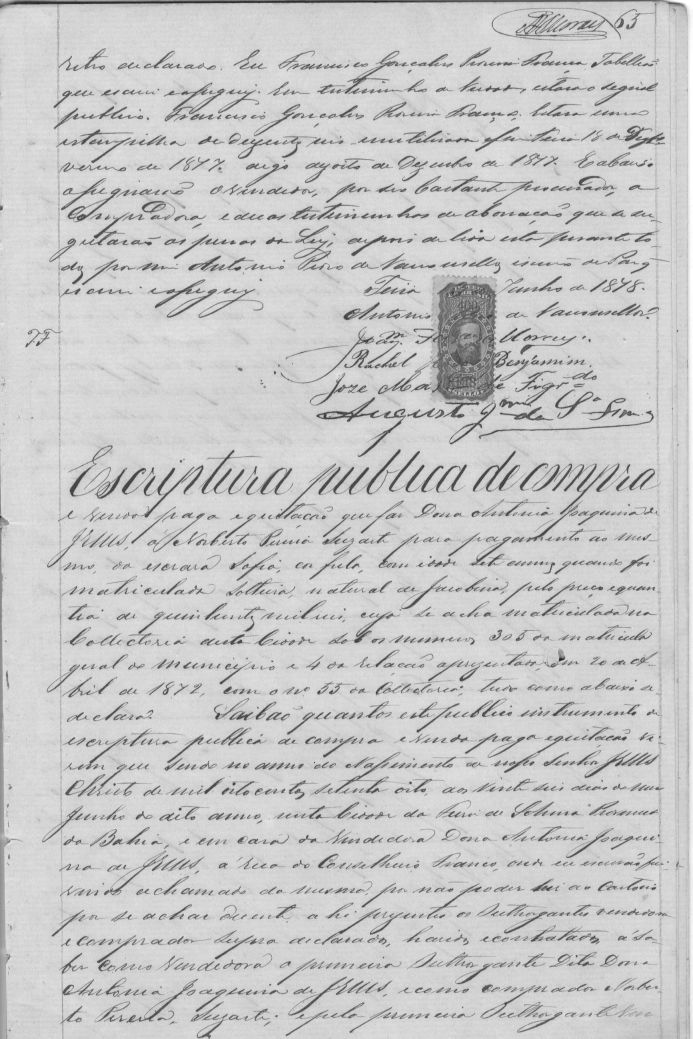 63
retro declarado. Eu Francisco Gonçalves Tabellião
que escrevi e assignei. Em testemunho de verdade, estava o signal
publico. Francisco Gonçalves estava uma
estampilha de duzentos reis inutilisada
de 1877. de Dezembro de 1877. E abaixo
assignarão o vendedor, por seo bastante procurador, a
Compradora, e duas testemunhas de abonação que se su
geitarão as penas da Ley, depois de lida esta perante to
dos, por mim Antonio de Vasconcellos, escrivão de Paz
escrevi e assignei. Feira Junho de 1878.
Antonio de Vasconcellos.
Rachel Benjamim.
Joze Ma de Figrdo
Augusto da Sa
Escriptura publica de compra
e venda paga e quitação que faz Dona Antonia Joaquina de
JESUS, a Norberto Pereira Suzarte para pagamento ao mes
mo, da escrava Sofia, cafuza, com idade sete annos, quando foi
matriculada, solteira, natural de Jacobina, pelo preço e quan
tia de quinhentos mil reis, cuja se acha matriculada na
Collectoria desta Cidade sob os numeros 305 da matricula
geral do municipio e 4 da relação apresentada em 20 de A
bril de 1872, com o no 55 da Collectoria; tudo como abaixo se
declara. Saibão quantos este publico instrumento de
escriptura publica de compra e venda paga e quitação vi
rem que sendo no anno do Nascimento de nosso Senhor JESUS
Christo de mil oito centos setenta oito, aos vinte seis dias do mez
Junho do dito anno, nesta Cidade da Feira de Sant'Anna Provincia
da Bahia, e em casa da vendedora Dona Antonia Joaqui
na de JESUS, á rua do Conselheiro Franco, onde eu escrivão fui
vindo a chamado da mesma, por não poder hir ao Cartorio
por se achar doente, ahi presentes os Outhorgantes vendedora
e comprador supra declarados, havidos e contratados, á sa
ber como vendedora a primeira Outhorgante Dita Dona
Antonia Joaquina de JESUS, e como comprador Norber
to Pereira Suzarte; e pela primeira Outhorgante